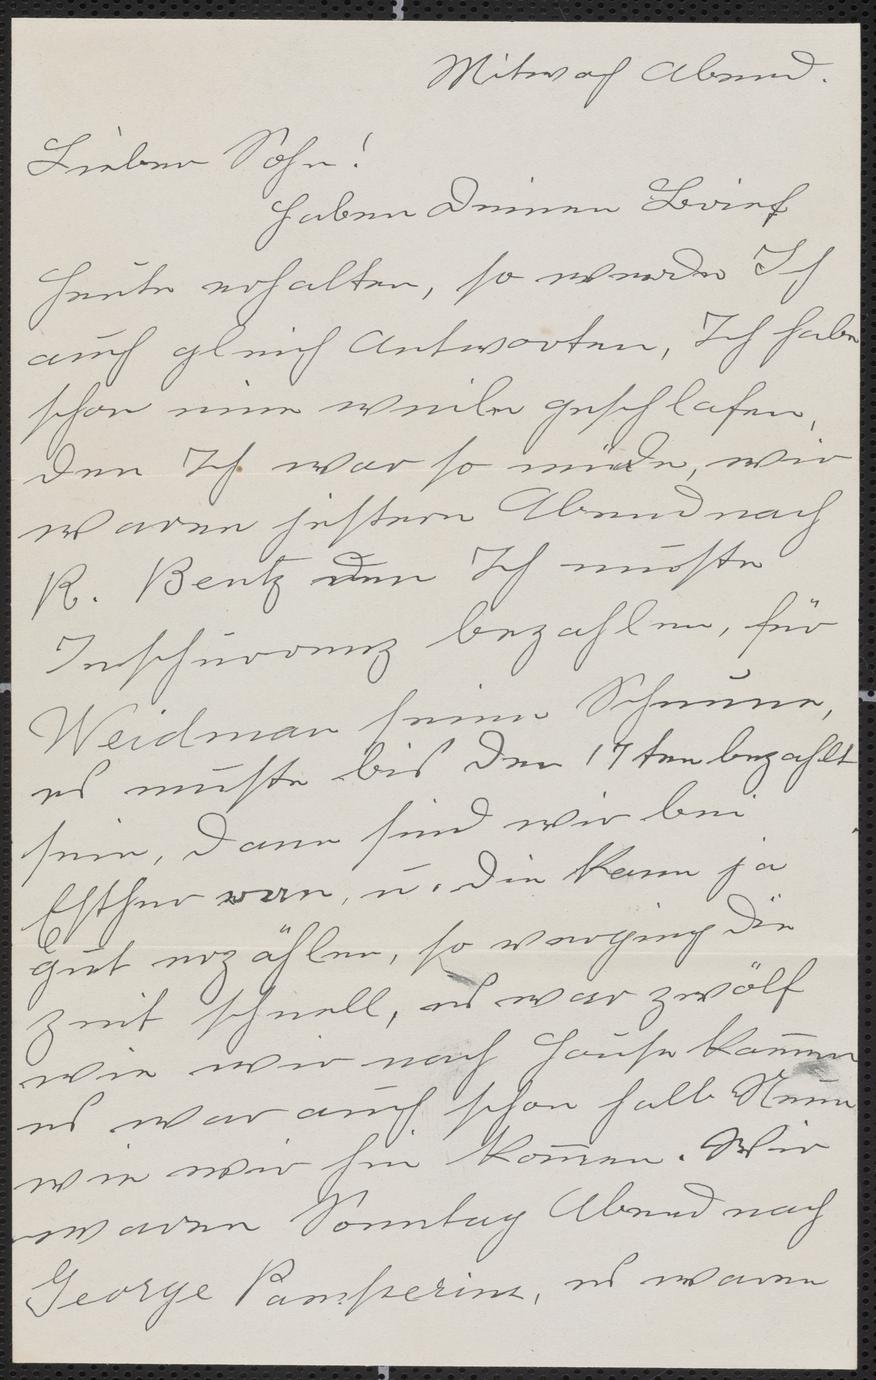 Mitwoch Abend.
Lieber Sohn!
Haben Deinen Brief
heute erhalten, so werde Ich
auch gleich Antworten, Ich habe
schon eine weile geschlafen,
den Ich war so müde, wir
waren jestern Abend nach
R. Bentz den Ich musste
Inschurrenz bezahlen, für
Weidman seine Scheune,
es muste bis den 17ten bezahlt
sein, dann sind wir bei
Esther wern, u. die kann ja
gut erzählen, so verging die
zeit schnell, es war zwölf
wie wir nach Hause kamen
es war auch schon halb Neun
wie wir hin komen. Wir
waren Sonntag Abend nach
George Pamperins, es waren